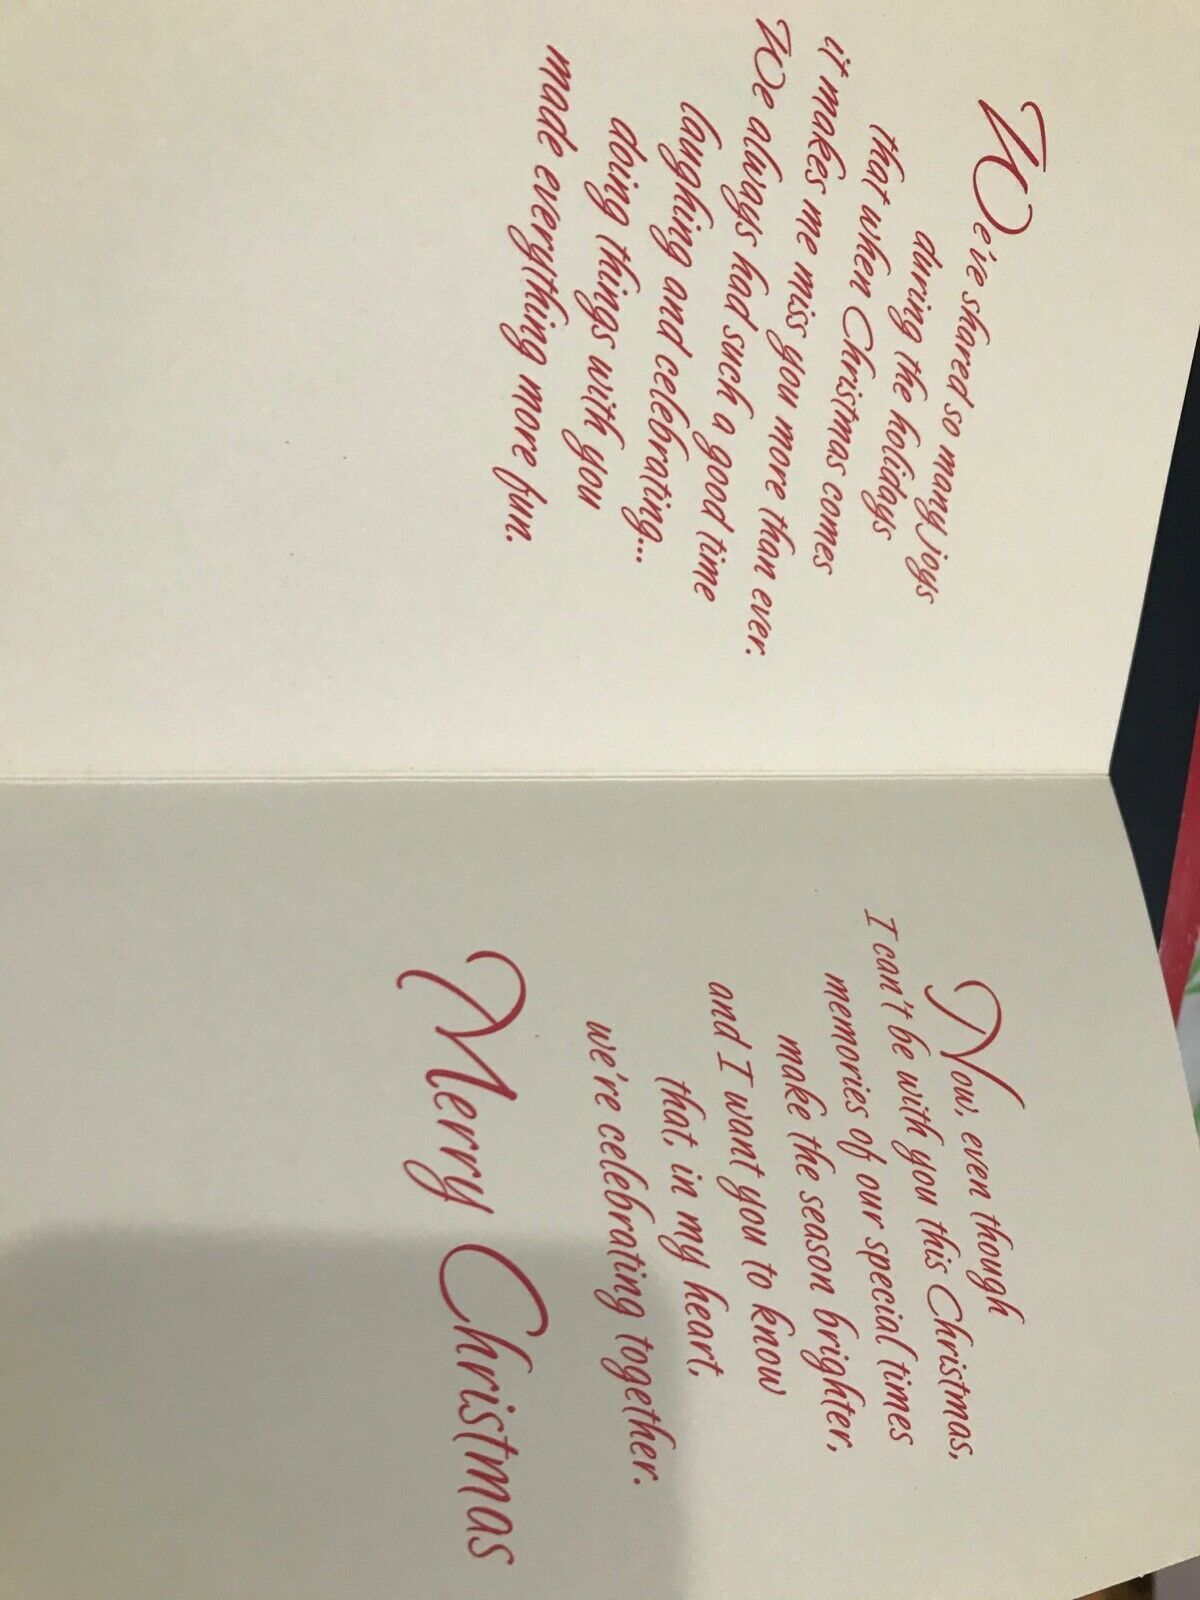 We've shared so many joys
during the holidays
that when Christmas comes
it makes me miss you more than ever.
We always had such a good time
laughing and celebrating...
doing things with you
made everything more fun.
Now, even though
I can't be with you this Christmas,
memories of our special times
make the season brighter,
and I want you to know
that, in my heart,
we're celebrating together.
Merry Christmas